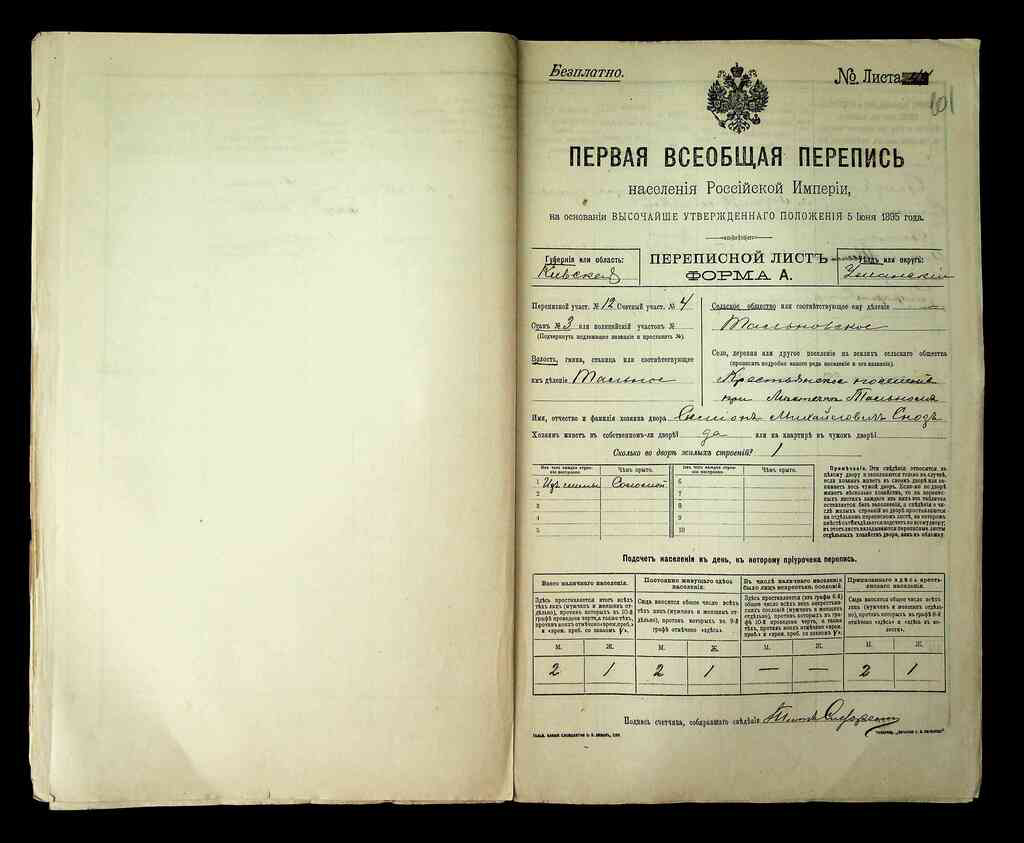 Безплатно.
№ Листа
101
ПЕРВАЯ ВСЕОБЩАЯ ПЕРЕПИСЬ
населенія Россійской Имперіи,
на основаніи ВЫСОЧАЙШЕ УТВЕРЖДЕННАГО ПОЛОЖЕНІЯ 5 Іюня 1895 года.
Губернія или область:
Кіевская
ПЕРЕПИСНОЙ ЛИСТЪ
ФОРМА А.
Уѣздъ или округъ:
Уманскій
Переписной участ. № 12 Счетный участ. № 4
Станъ № 3 или полицейскій участокъ №
(Подчеркнуть подлежащее названіе и проставить №).
Волость, гмина, станица или соотвѣтствующее
имъ дѣленіе Тальное
Сельское общество или соотвѣтствующее ему дѣленіе
Тальновское
Село, деревня или другое поселеніе на земляхъ сельскаго общества
(прописать подробно какого рода поселеніе и его названіе).
Крестьянское поселеніе
при Мѣстечкѣ Тальномъ
Имя, отчество и фамилія хозяина двора Семіонъ Михайловичъ
Хозяинъ живетъ въ собственномъ-ли дворѣ? да или на квартирѣ въ чужомъ дворѣ?
Сколько во дворѣ жилыхъ строеній? 1
Изъ чего каждое строеніе построено.
Чѣмъ крыто.
Изъ чего каждое строеніе построено.
Чѣмъ крыто.
1 Изъ глины Соломой 6
2 7
3 8
4 9
5 10
Примѣчаніе. Эти свѣдѣнія относятся къ
цѣлому двору и заполняются только въ случаѣ,
если хозяинъ живетъ въ своемъ дворѣ или за-
нимаетъ весь чужой дворъ. Если-же во дворѣ
живетъ нѣсколько хозяйствъ, то на перепис-
ныхъ листахъ каждаго изъ нихъ эта табличка
оставляется безъ заполненія, а свѣдѣнія о чи-
слѣ жилыхъ строеній во дворѣ проставляются
на отдѣльномъ переписномъ листѣ, на которомъ
отдѣльныхъ хозяйствъ двора, какъ въ обложку.
Подсчетъ населенія въ день, къ которому пріурочена перепись.
Всего наличнаго населенія.
Постоянно живущаго здѣсь населенія.
Въ числѣ наличнаго населенія было лицъ некрестьян. сословій.
Приписаннаго здѣсь крестьянскаго населенія.
Здѣсь проставляется итогъ всѣхъ
тѣхъ лицъ (мужчинъ и женщинъ от-
дѣльно), противъ которыхъ въ 10-й
графѣ проведена черта, а также тѣхъ,
противъ коихъ отмѣчено «врем. преб.»
Сюда вносится общее число всѣхъ
тѣхъ лицъ (мужчинъ и женщинъ от-
дѣльно), противъ которыхъ въ 9-й
графѣ отмѣчено «здѣсь».
Здѣсь проставляется (изъ графы 6-й)
общее число всѣхъ лицъ некрестьян-
Сюда вносится общее число всѣхъ
лицъ (мужчинъ и женщинъ отдѣль-
но), противъ которыхъ въ графѣ 8-й
отмѣчено «здѣсь» и «здѣсь въ во-
лости».
М. Ж. М. Ж. М. Ж. М. Ж.
2 1 2 1 — — 2 1
Подпись счетчика, собиравшаго свѣдѣнія